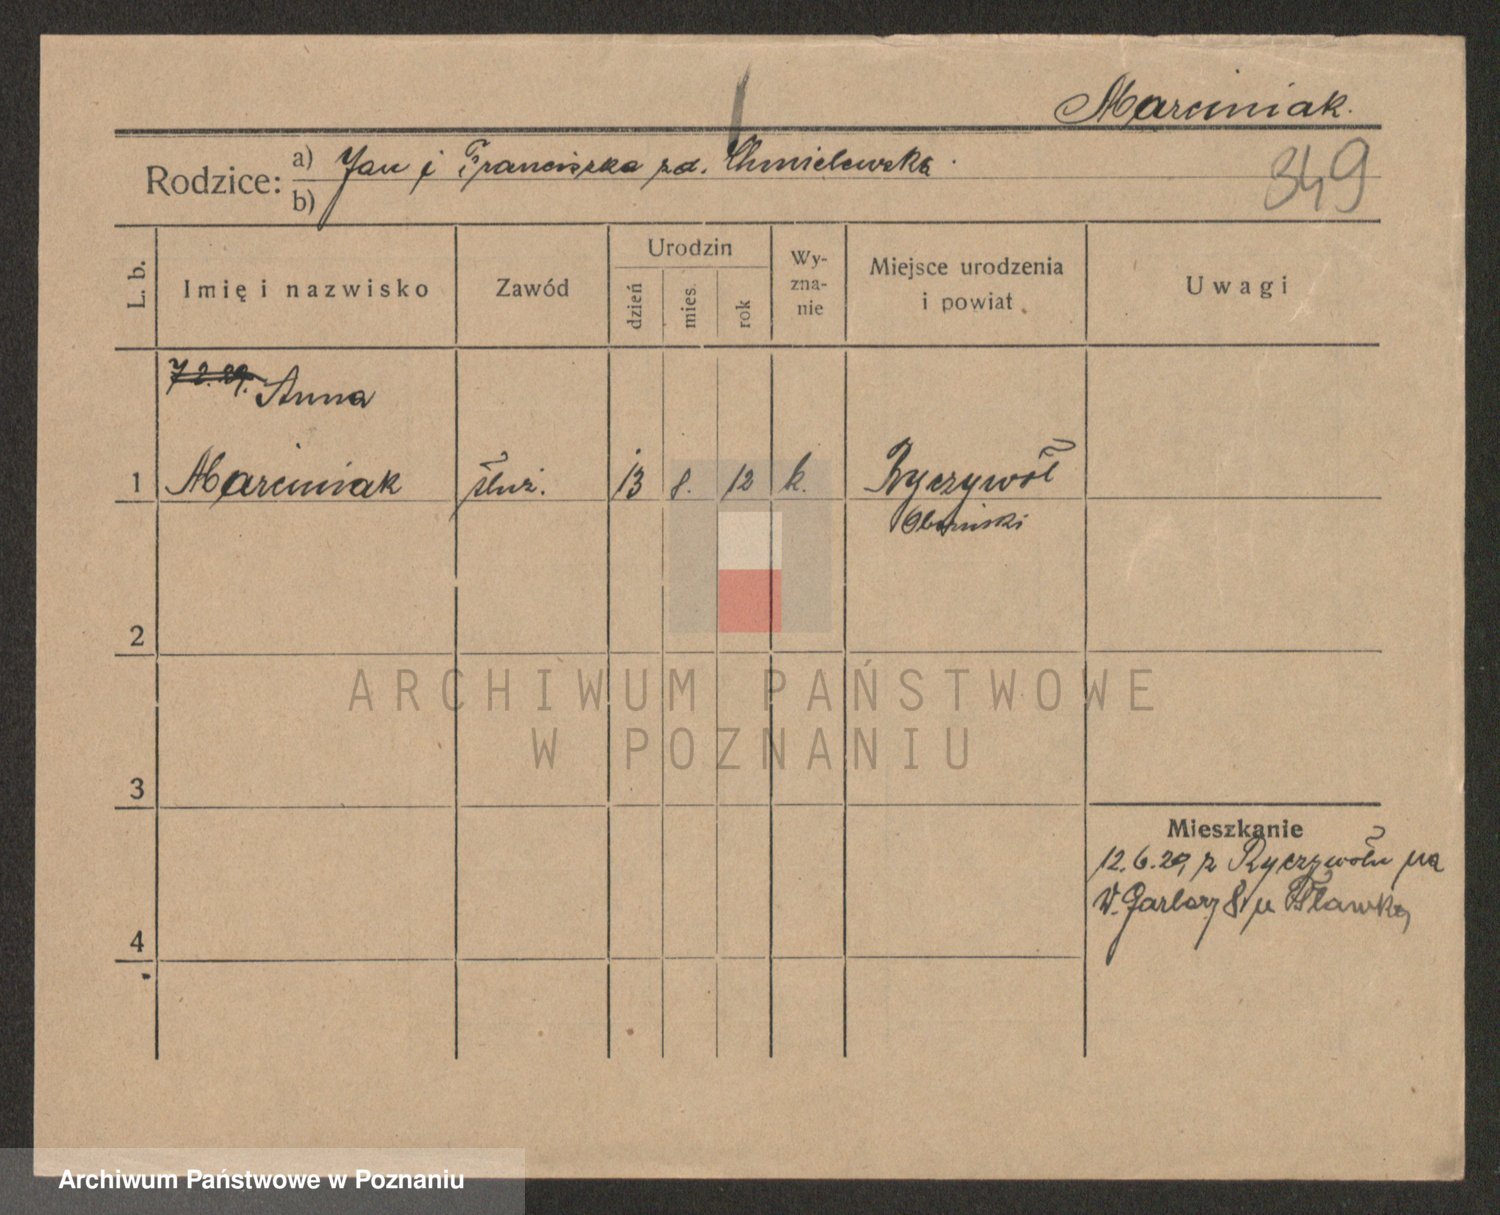 Marciniak.
349
Rodzice: a) Jan i Franciszka zd. Chmielewska.
b)
L. b.
Imię i nazwisko
Zawód
Urodzin
dzień
mies.
rok
Wy-
zna-
nie
Miejsce urodzenia
i powiat
Uwagi
7.2.29. Anna
1 Marciniak służ. 13 8. 12 k. Ryczywół
Obornicki
2
3
4
Mieszkanie
12.6.29 z Ryczywołu na
W. Garbary 8 u
ARCHIWUM PAŃSTWOWE
W POZNANIU
Archiwum Państwowe w Poznaniu